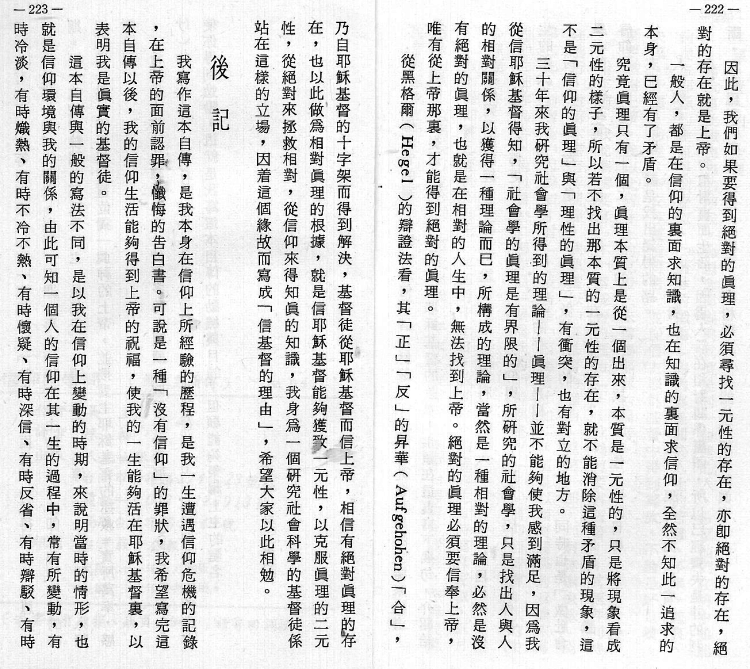 — 222 —
因此，我們如果要得到絕對的眞理，必須尋找一元性的存在，亦卽絕對的存在，絕
對的存在就是上帝。
一般人，都是在信仰的裏面求知識，也在知識的裏面求信仰，全然不知此一追求的
本身，巳經有了矛盾。
究竟眞理只有一個，眞理本質上是從一個出來，本質是一元性的，只是將現象看成
二元性的樣子，所以若不找出那本質的一元性的存在，就不能消除這種矛盾的現象，這
不是「信仰的眞理」與「理性的眞理」，有衝突，也有對立的地方。
三十年來我硏究社會學所得到的理論——眞理——並不能夠使我感到滿足，因爲我
從信耶穌基督得知，「社會學的眞理是有界限的」，所硏究的社會學，只是找出人與人
的相對關係，以獲得一種理論而巳，所構成的理論，當然是一種相對的理論，必然是沒
有絕對的眞理，也就是在相對的人生中，無法找到上帝。絕對的眞理必須要信奉上帝，
唯有從上帝那裏，才能得到絕對的眞理。
從黑格爾（Hegel）的辯證法看，其「正」「反」的昇華（Aufgehohen）「合」，
— 223 —
乃自耶穌基督的十字架而得到解決，基督徒從耶穌基督而信上帝，相信有絕對眞理的存
在，也以此做爲相對眞理的根據，就是信耶穌基督能夠獲致一元性，以克服眞理的二元
性，從絕對來拯救相對，從信仰來得知眞的知識，我身爲一個硏究社會科學的基督徒係
站在這樣的立場，因着這個緣故而寫成「信基督的理由」，希望大家以此相勉。
後記
我寫作這本自傳，是我本身在信仰上所經驗的歷程，是我一生遭遇信仰危機的記錄
，在上帝的面前認罪，懺悔的告白書。可說是一種「沒有信仰」的罪狀，我希望寫完這
本自傳以後，我的信仰生活能夠得到上帝的祝福，使我的一生能夠活在耶穌基督裏，以
表明我是眞實的基督徒。
這本自傳與一般的寫法不同，是以我在信仰上變動的時期，來說明當時的情形，也
就是信仰環境與我的關係，由此可知一個人的信仰在其一生的過程中，常有所變動，有
時冷淡，有時熾熱、有時不冷不熱、有時懷疑、有時深信、有時反省、有時辯駁、有時